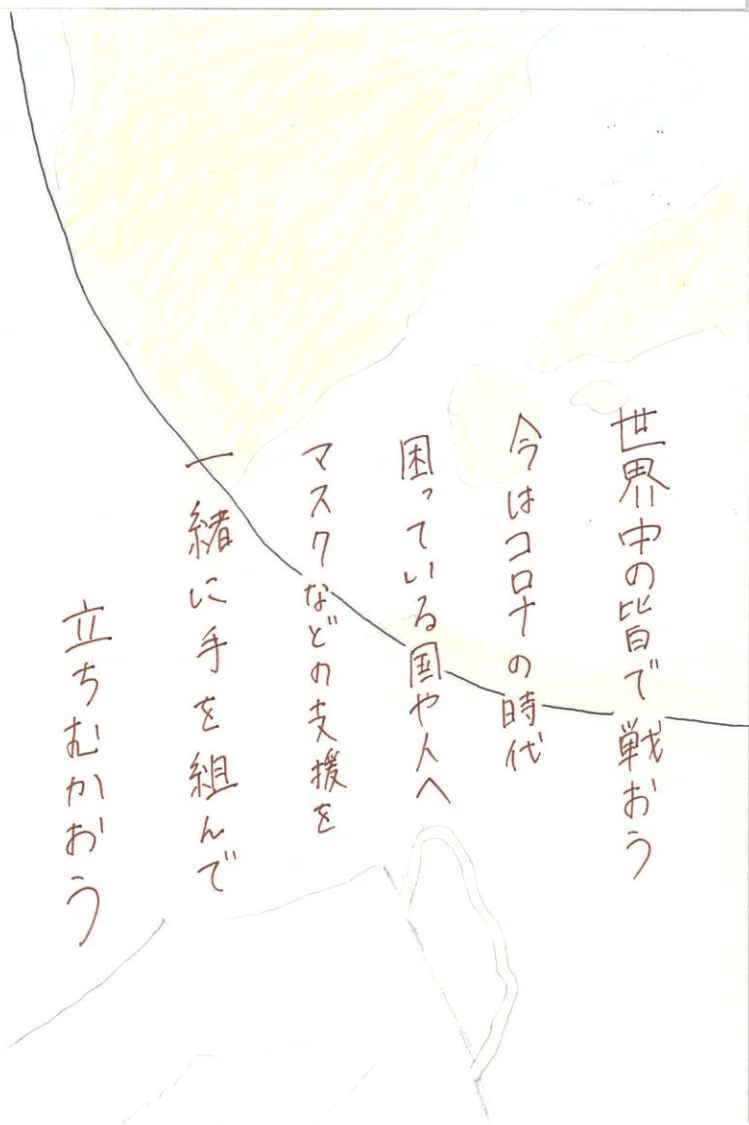 世界中の皆で戦おう
今はコロナの時代
困っている国や人へ
マスクなどの支援を
一緒に手を組んで
立ちむかおう